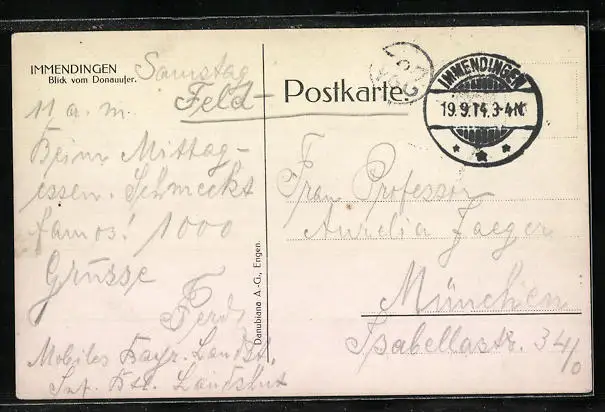 IMMENDINGEN
Blick vom Donauufer.
Samstag
11 a. m.
Beim Mittag-
essen. Schmeckt
famos! 1000
Grüsse
Ferd
Mobiles bayr. Landst.
Inf. Btl. Landshut
Danubiana A.-G., Engen.
Feld-
Postkarte
IMMENDINGEN
19.9.14.3-4N
Frau Professor
Aurelia Jaeger
München
Isabellastr. 34/0